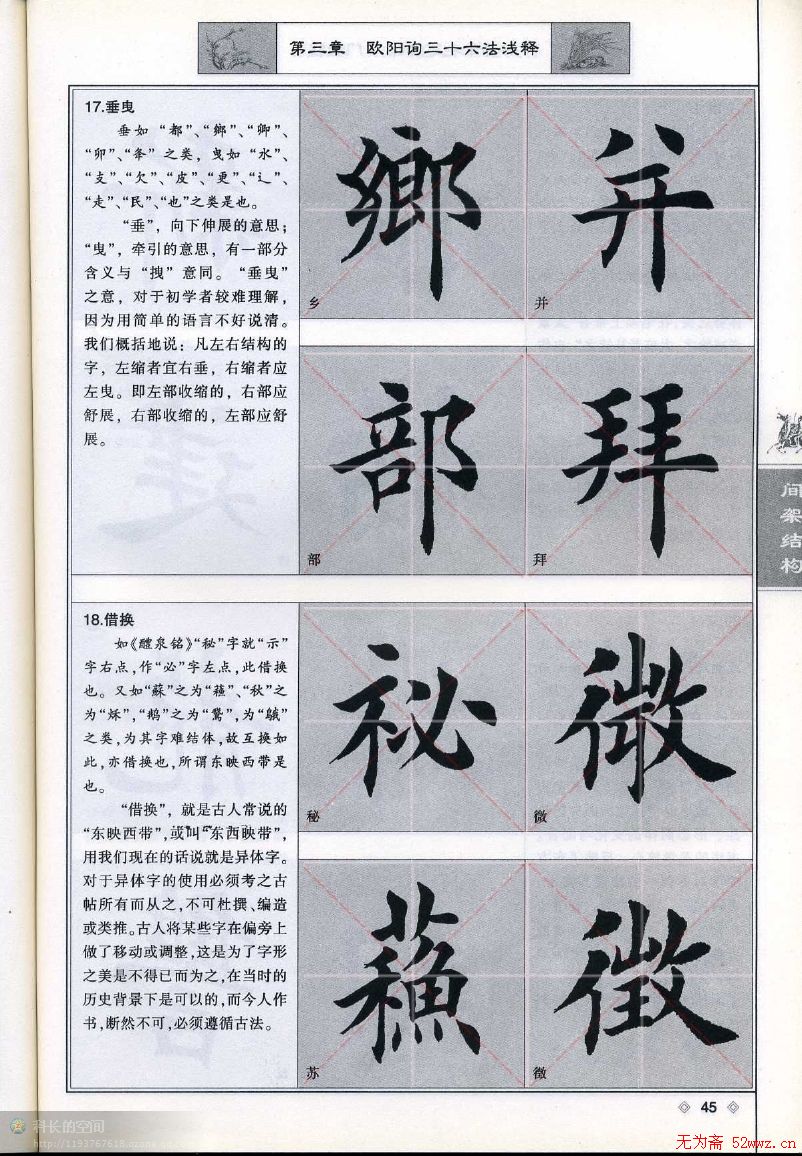 第三章 欧阳询三十六法浅释
17.垂曳
垂如“都”、“鄉”、“卿”、
“卯”、“夅”之类，曳如“水”、
“支”、“欠”、“皮”、“更”、“辶”、
“走”、“民”、“也”之类是也。
“垂”，向下伸展的意思；
“曳”，牵引的意思，有一部分
含义与“拽”意同。“垂曳”
之意，对于初学者较难理解，
因为用简单的语言不好说清。
我们概括地说：凡左右结构的
字，左缩者宜右垂，右缩者应
左曳。即左部收缩的，右部应
舒展，右部收缩的，左部应舒
展。
鄉
乡
并
并
部
部
拜
拜
间架结构
18.借换
如《醴泉铭》“秘”字就“示”
字右点，作“必”字左点，此借换
也。又如“蘇”之为“蘓”、“秋”之
为“秌”，“鹅”之为“鵞”，为“䳘”
之类，为其字难结体，故互换如
此，亦借换也，所谓东映西带是
也。
“借换”，就是古人常说的
“东映西带”，或叫“东西映带”，
用我们现在的话说就是异体字。
对于异体字的使用必须考之古
帖所有而从之，不可杜撰、编造
或类推。古人将某些字在偏旁上
做了移动或调整，这是为了字形
之美是不得已而为之，在当时的
历史背景下是可以的，而今人作
书，断然不可，必须遵循古法。
祕
秘
微
微
蘓
苏
徵
徵
45
科长的空间
http://1193767618.qzone.qq.com
无为斋 52wwz.cn